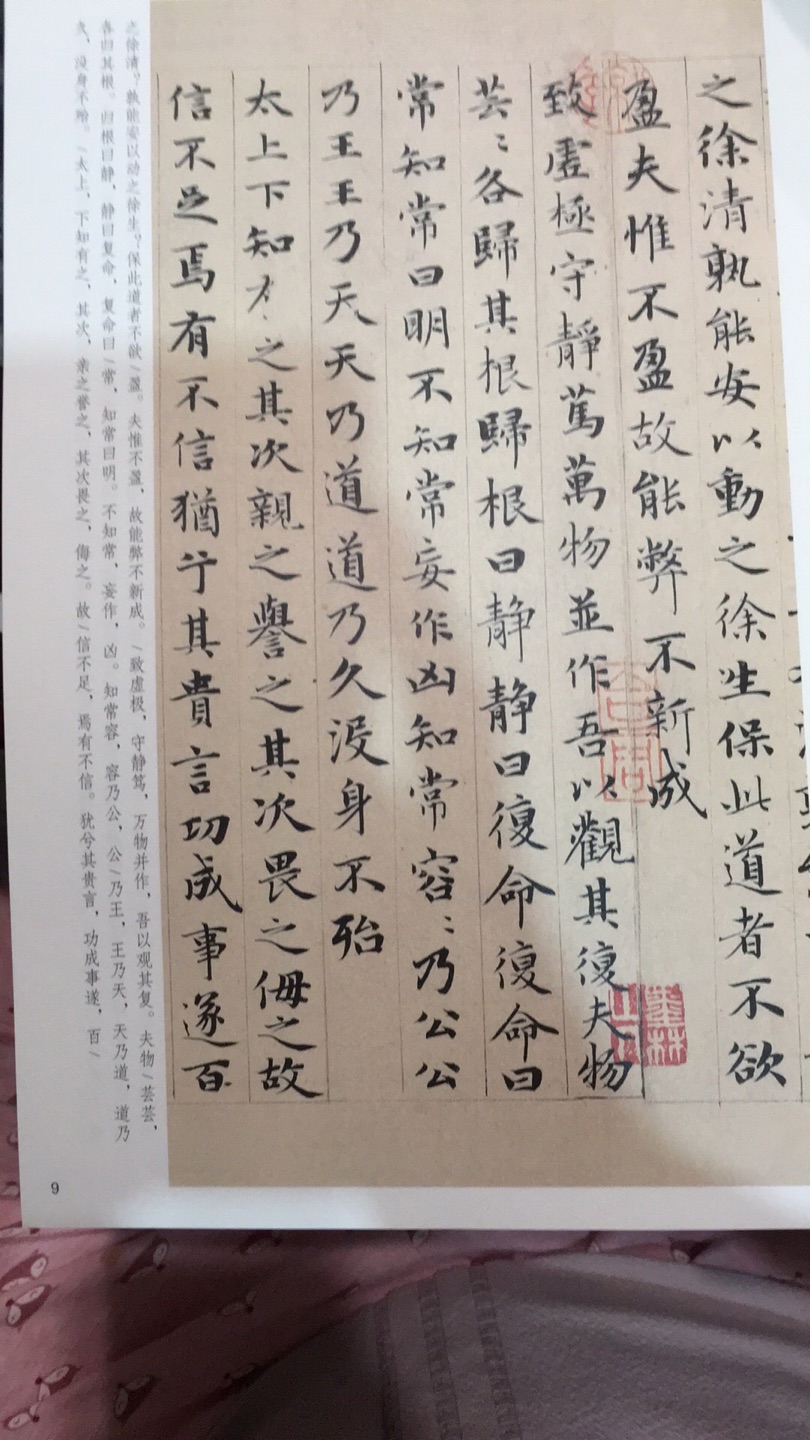 之徐清孰能安以動之徐生保此道者不欲
盈夫惟不盈故能弊不新成
致虛極守靜篤萬物並作吾以觀其復夫物
芸〻各歸其根歸根曰静静曰復命復命曰
常知常曰明不知常妄作凶知常容〻乃公公
乃王王乃天天乃道道乃久没身不殆
太上下知有之其次親之譽之其次畏之侮之故
信不足焉有不信猶兮其貴言功成事遂百
墨林
之徐清？孰能安以动之徐生？保此道者不欲/盈。夫惟不盈，故能弊不新成。/致虚极，守静笃，万物并作，吾以观其复。夫物/芸芸，
各归其根。归根曰静，静曰复命，复命曰/常，知常曰明。不知常，妄作，凶。知常容，容乃公，公/乃王，王乃天，天乃道，道乃
久，没身不殆。/太上，下知有之，其次，亲之誉之，其次畏之，侮之。故/信不足，焉有不信。犹兮其贵言，功成事遂，百/
9